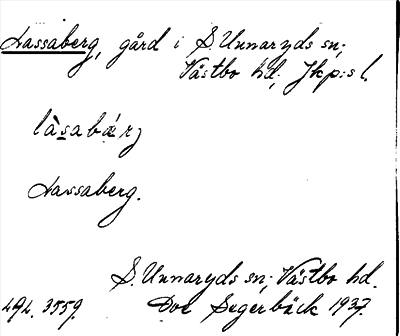 Lassaberg, gård i S. Unnaryds sn;
Västbo hd; Jkp:s l.
làsabærj
Lassaberg.
S. Unnaryds sn; Västbo hd.
494. 3559. Dos Segerbäck 1937.